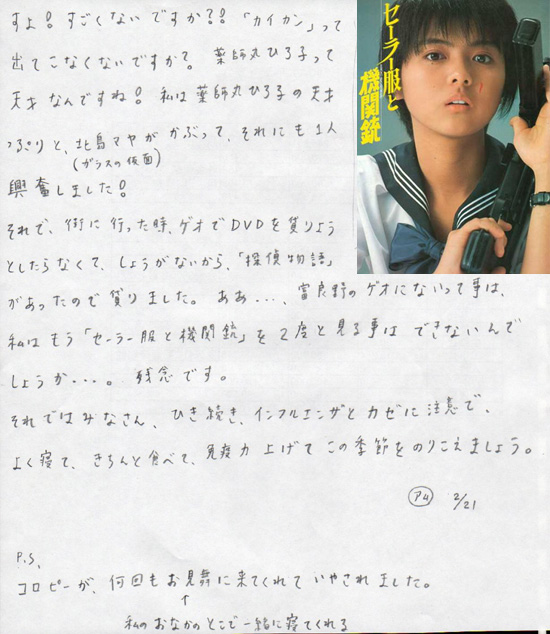 すよ!すごくないですか??「カイカン」って
出てこなくないですか?薬師丸ひろ子って
天才なんですね!私は薬師丸ひろ子の天才
っぷりと、北島マヤが かぶって、それにも1人
(ガラスの仮面)
興奮しました!
それで、街に行った時、ゲオでDVDを貸りよう
としたらなくて、しょうがないから、「探偵物語」
があったので貸りました。ああ...、富良野のゲオにないって事は、
私はもう「セーラー服と機関銃」を2度と見る事は できないんで
しょうか...。残念です。
それではみなさん、ひき続き、インフルエンザとカゼに注意で、
よく寝て、きちんと食べて、免疫力 上げて この季節をのりこえましょう。
アム 2/21
P.S.
コロピーが、何回もお見舞に来てくれて いやされました。
↑
私のおなかのとこで一緒に寝てくれる
セーラー服と
機関銃